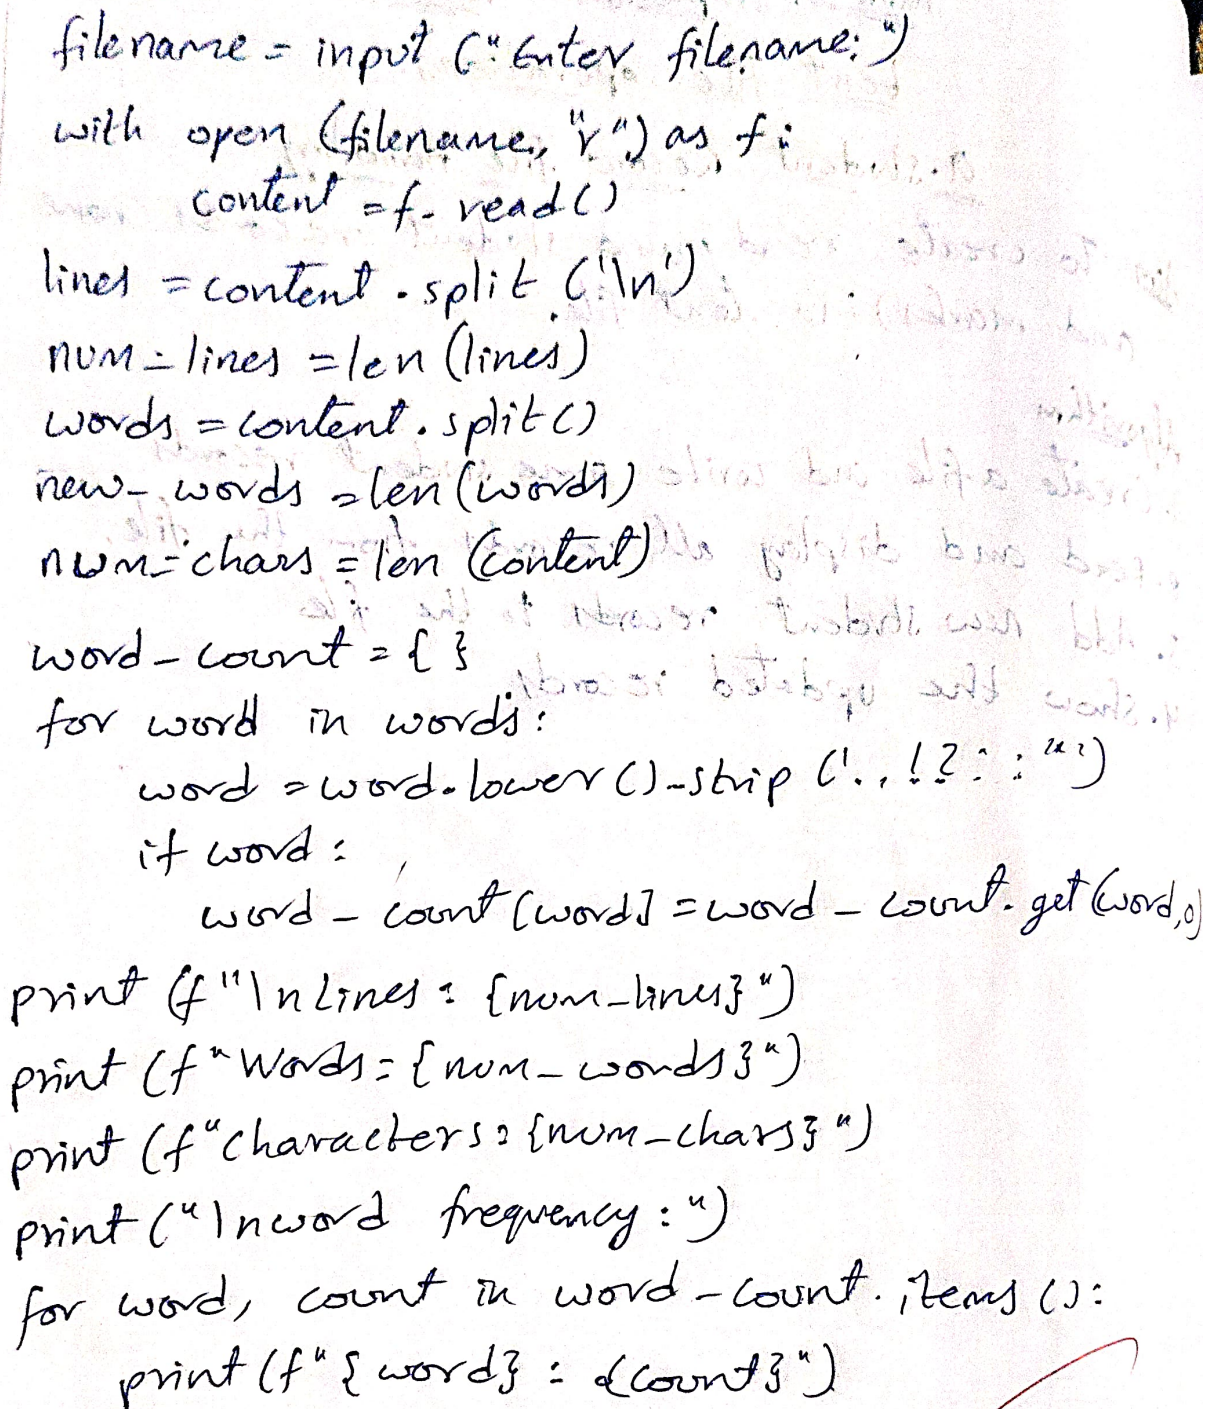 filename = input ("Enter filename: ")
with open (filename, "r") as f:
content = f. read ()
lines = content . split ('\n')
num_lines = len (lines)
words = content . split ()
new_words = len (words)
num_chars = len (content)
word_count = { }
for word in words:
word = word. lower () . strip ('.,!?:;"'')
if word :
word_count [word] = word_count. get (word,0)
print (f "\n Lines : {num_lines} ")
print (f " Words : {num_words} ")
print (f "Characters : {num_chars} ")
print ("\n word frequency : ")
for word, count in word_count. items ():
print (f " {word} : {count} ")